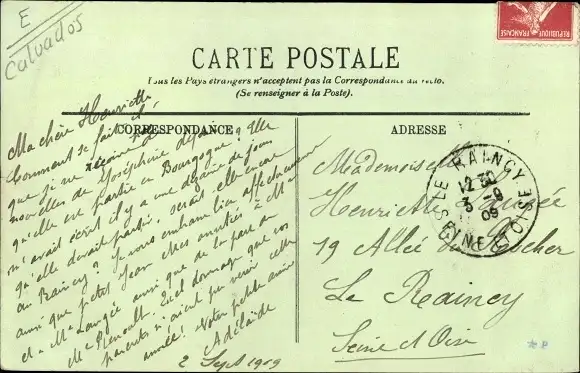 E
Calvados
REPUBLIQUE FRANÇAISE
CARTE POSTALE
Tous les Pays étrangers n'acceptent pas la Correspondance au recto.
(Se renseigner à la Poste).
CORRESPONDANCE
Ma chère Henriette
Comment se fait-il,
que je ne reçoive de
nouvelles de Joséphine depuis
qu'elle est partie en Bourgogne? Elle
m'avait écrit il y a une dizaine de jours
qu'elle devait partir, serait elle encore
au Raincy? Je vous embrasse bien affectueusement
ainsi que petit Jean. Mes amitiés à Mr
et à Mme ainsi que de la part de
Mme Quel dommage que vos
parents n'aient pu venir cette
année! Votre petite amie
Adélaïde
2 Sept 1909
ADRESSE
Mademoiselle
Henriette
19 Allée du Rocher
Le Raincy
Seine et Oise
LE RAINCY
12 30
3 -9
09
SEINE ET OISE